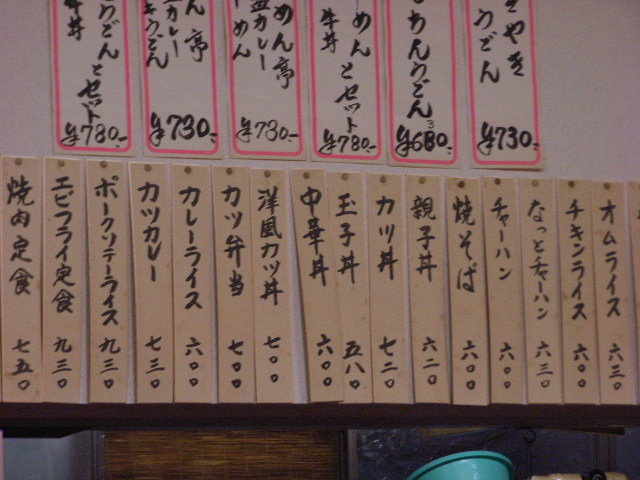 きやき
うどん
¥730.-
あんうどん
¥680.-
3
ーめんと
牛丼セット
¥780.-
めん亭
カレー
めん
¥730.-
ん亭
カレー
うどん
¥730.-
うどんと
牛丼セット
¥780.-
オムライス 六三〇
チキンライス 六〇〇
なっとチャーハン 六三〇
チャーハン 六〇〇
焼そば 六〇〇
親子丼 六二〇
カツ丼 七二〇
玉子丼 五八〇
中華丼 六〇〇
洋風カツ丼 七〇〇
カツ弁当 七〇〇
カレーライス 六〇〇
カツカレー 七三〇
ポークソテーライス 九三〇
エビフライ定食 九三〇
焼肉定食 七五〇